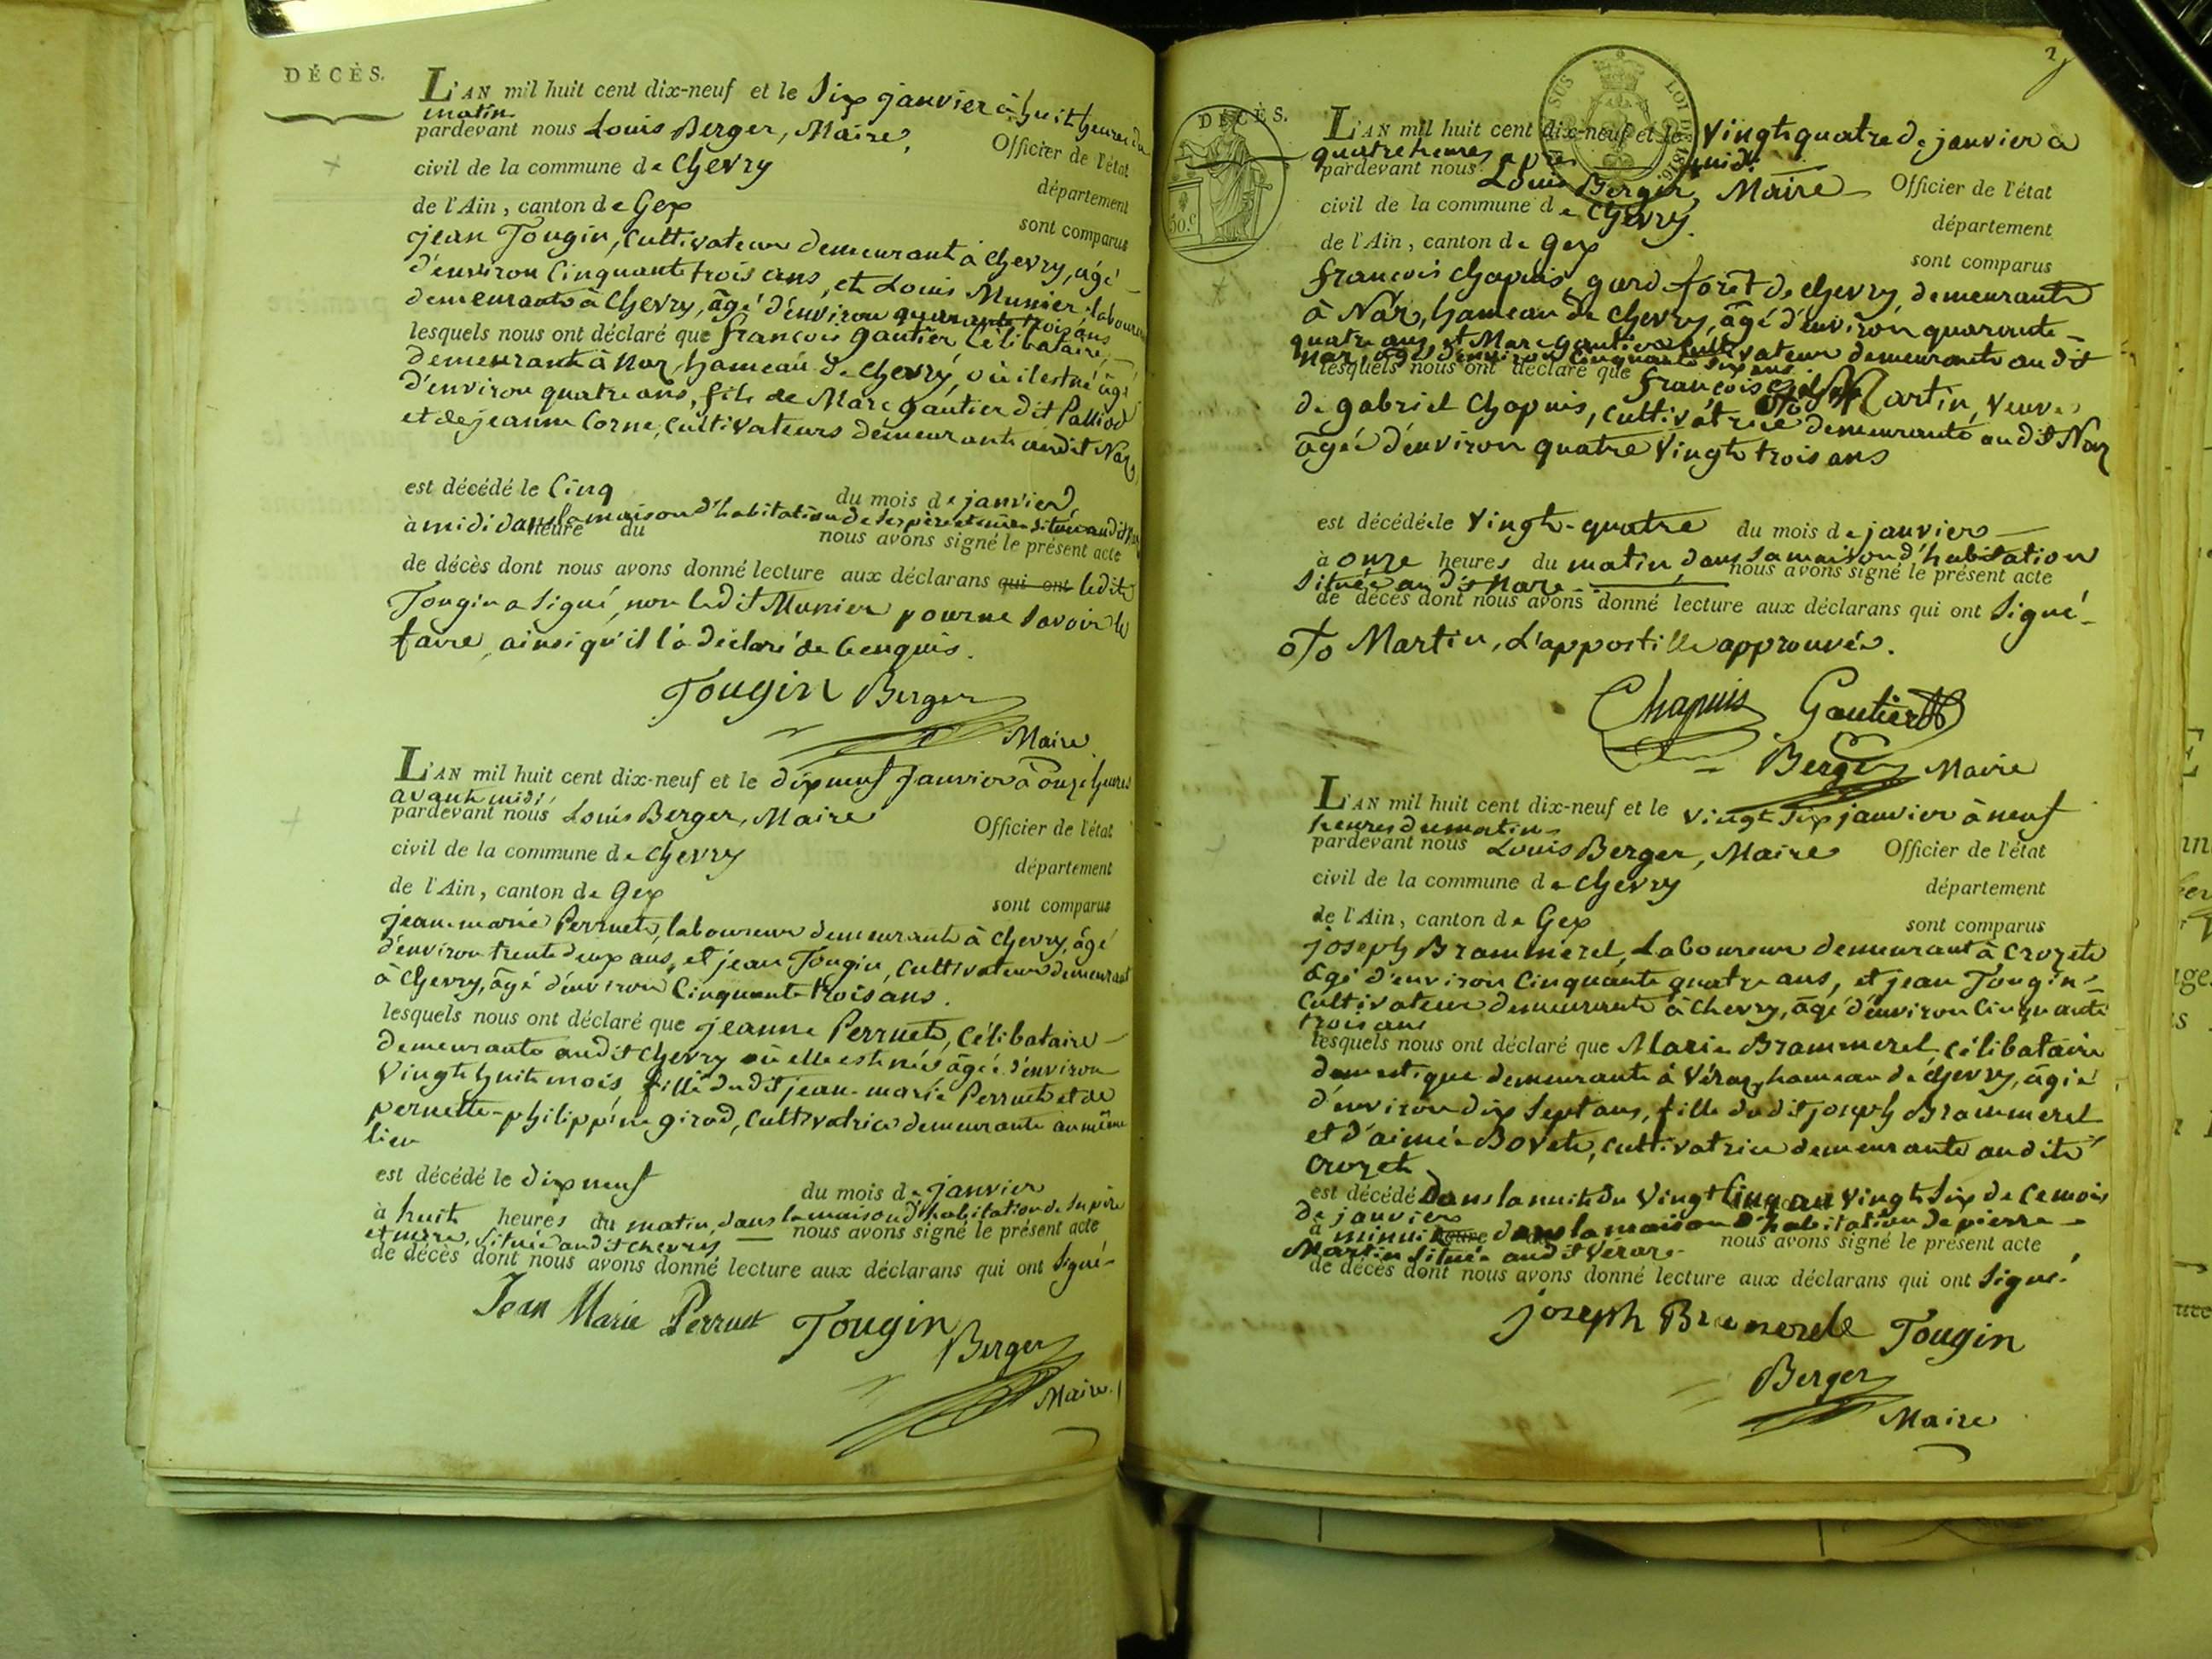 DÉCÈS.
L'AN mil huit cent dix-neuf et le Six janvier à huit heures du
matin
pardevant nous Louis Berger, Maire, Officier de l'état
civil de la commune de Chevry département
de l'Ain, canton de Gex sont comparus
jean Tougin, Cultivateur demeurant à Chevry, âgé
d'environ Cinquante trois ans, et Louis Munier laboureur
demeurant à Chevry, âgé d'environ quarante trois ans
lesquels nous ont déclaré que françois gautier Célibataire,
demeurant à Nax, hameau de Chevry, où il est né âgé
d'environ quatre ans, fils de Marc gautier dit Palliod
et de jeanne Corne, Cultivateurs demeurant audit Nax,
est décédé le Cinq du mois de janvier,
à midi dans la maison d'habitation de ses père et mère située audit Nax
heure du nous avons signé le présent acte
de décès dont nous avons donné lecture aux déclarans qui ont ledit
Tougin a Signé, non ledit Munier pour ne Savoir le
faire, ainsi qu'il l'a déclaré de ce enquis.
Tougin Berger
Maire
L'AN mil huit cent dix-neuf et le dix neuf Janvier à onze heures
avant midi,
pardevant nous Louis Berger, Maire Officier de l'état
civil de la commune de Chevry département
de l'Ain, canton de Gex sont comparus
jean-marie Perruet, laboureur demeurant à Chevry, âgé
d'environ trente deux ans, et jean Tougin, Cultivateur demeurant
à Chevry, âgé d'environ Cinquante trois ans.
lesquels nous ont déclaré que jeanne Perruet, Célibataire
demeurante audit Chevry où elle est née âgée d'environ
Vingt huit mois, fille dudit jean-marie Perruet et de
pernette-philippine girod, Cultivatrice demeurante au même
lieu
est décédé le dix neuf du mois de janvier
à huit heures du matin, dans la maison d'habitation de Ses père
et mère, Située audit Chevry nous avons signé le présent acte
de décès dont nous avons donné lecture aux déclarans qui ont Signé
Jean Marie Perruet Tougin
Berger
Maire.
2
DÉCÈS.
50 c.
SUS LOI DE 1816.
L'AN mil huit cent dix-neuf et le Vingt quatre de janvier à
quatre heures après midi
pardevant nous Louis Berger, Maire Officier de l'état
civil de la commune de Chevry. département
de l'Ain, canton de Gex sont comparus
françois Chapuis, gard forêt de Chevry, demeurant
à Nax, hameau de Chevry, âgé d'environ quarante
quatre ans, et Marc gautier cultivateur demeurant audit
Nax, âgé d'environ Cinquante Six ans
lesquels nous ont déclaré que françoise Martin, Veuve
de gabriel Chapuis, Cultivatrice demeurante audit Nax
âgée d'environ quatre Vingt trois ans
est décédée le Vingt-quatre du mois de janvier
à onze heures du matin, dans Sa maison d'habitation
Située audit Nax. nous avons signé le présent acte
de décès dont nous avons donné lecture aux déclarans qui ont Signé
o/o Martin, L'appostille approuvée.
Chapuis Gautier
Berger Maire
L'AN mil huit cent dix-neuf et le Vingt Six janvier à neuf
heures du matin
pardevant nous Louis Berger, Maire Officier de l'état
civil de la commune de Chevry département
de l'Ain, canton de Gex sont comparus
joseph Brammerel, Laboureur demeurant à Crozet
âgé d'environ Cinquante quatre ans, et jean Tougin
Cultivateur demeurant à Chevry, âgé d'environ Cinquante
trois ans
lesquels nous ont déclaré que Marie Brammerel, Célibataire
domestique demeurante à Véraz, hameau de Chevry, âgée
d'environ dix Sept ans, fille dudit joseph Brammerel
et d'aimée Bovet, Cultivatrice demeurante audit
Crozet
est décédé Dans la nuit du Vingt Cinq au Vingt Six de Ce mois
de janvier
à minuit heure dans la maison d'habitation de pierre
Martin Située audit Véraz. nous avons signé le présent acte
de décès dont nous avons donné lecture aux déclarans qui ont Signé.
joseph Bramerele Tougin
Berger
Maire